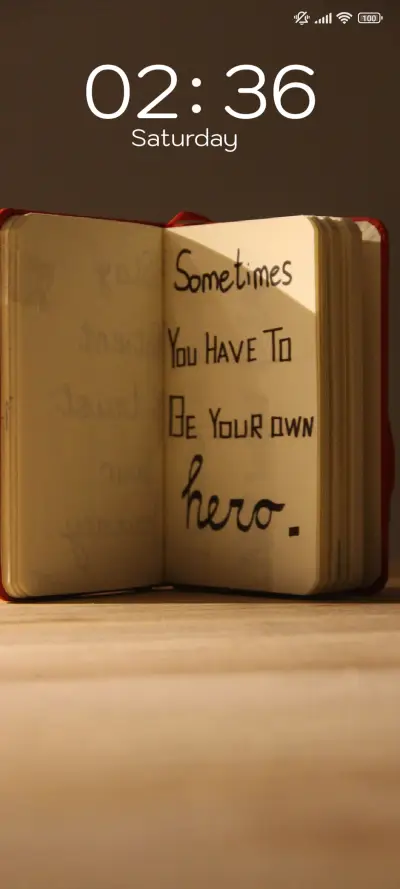 100
02:36
Saturday
Sometimes
You HAVE To
BE YouR OWN
hero.